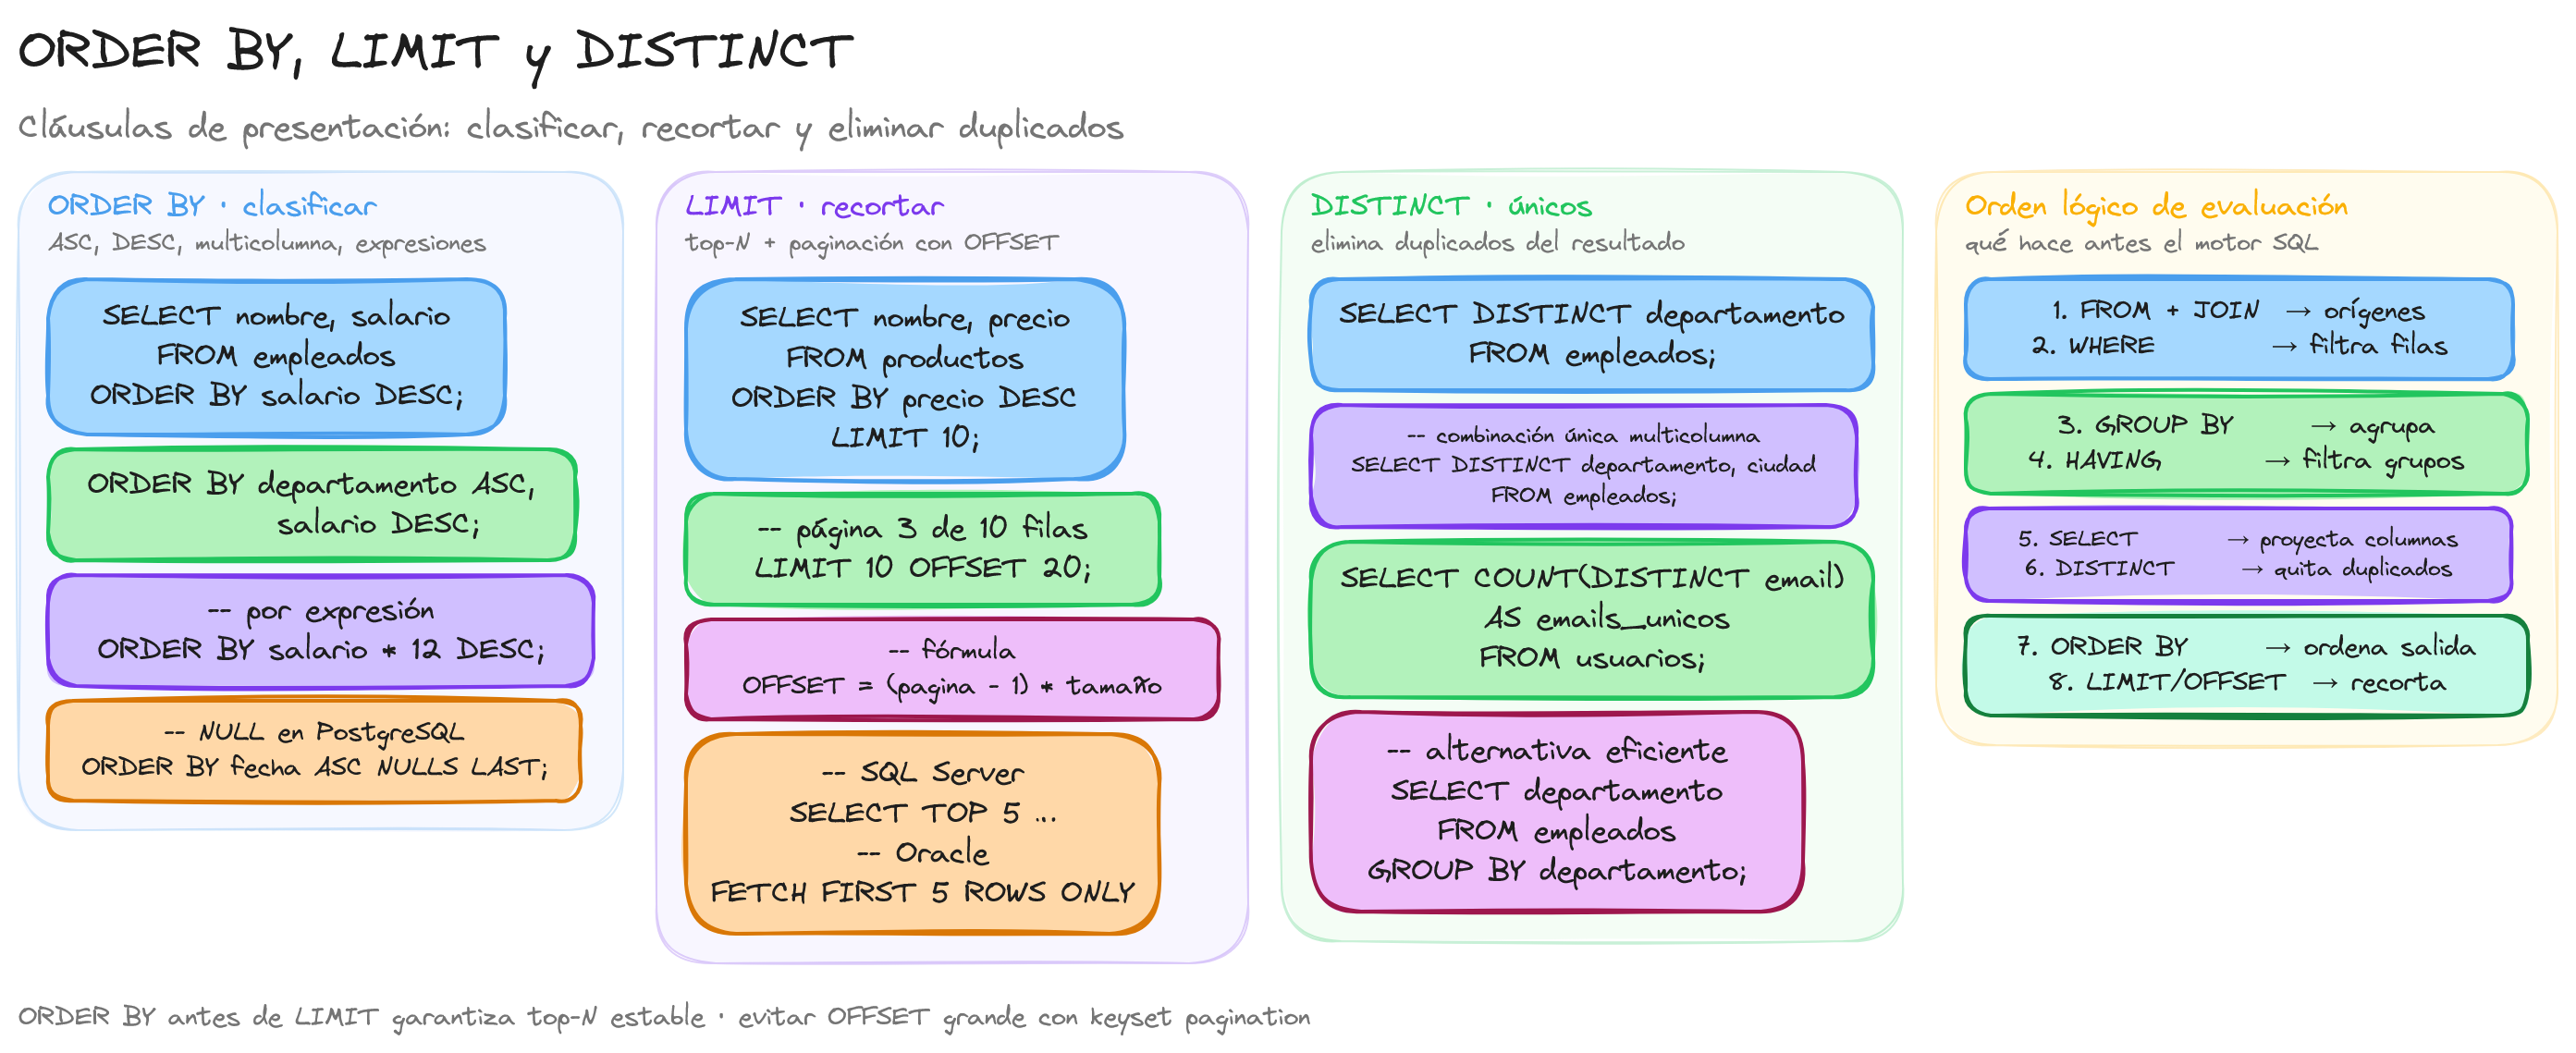 ORDER BY, LIMIT y DISTINCT
Cláusulas de presentación: clasificar, recortar y eliminar duplicados
ORDER BY · clasificar
ASC, DESC, multicolumna, expresiones
SELECT nombre, salario
FROM empleados
ORDER BY salario DESC;
ORDER BY departamento ASC,
salario DESC;
-- por expresión
ORDER BY salario * 12 DESC;
-- NULL en PostgreSQL
ORDER BY fecha ASC NULLS LAST;
LIMIT · recortar
top-N + paginación con OFFSET
SELECT nombre, precio
FROM productos
ORDER BY precio DESC
LIMIT 10;
-- página 3 de 10 filas
LIMIT 10 OFFSET 20;
-- fórmula
OFFSET = (pagina - 1) * tamaño
-- SQL Server
SELECT TOP 5 ...
-- Oracle
FETCH FIRST 5 ROWS ONLY
DISTINCT · únicos
elimina duplicados del resultado
SELECT DISTINCT departamento
FROM empleados;
-- combinación única multicolumna
SELECT DISTINCT departamento, ciudad
FROM empleados;
SELECT COUNT(DISTINCT email)
AS emails_unicos
FROM usuarios;
-- alternativa eficiente
SELECT departamento
FROM empleados
GROUP BY departamento;
Orden lógico de evaluación
qué hace antes el motor SQL
1. FROM + JOIN → orígenes
2. WHERE → filtra filas
3. GROUP BY → agrupa
4. HAVING → filtra grupos
5. SELECT → proyecta columnas
6. DISTINCT → quita duplicados
7. ORDER BY → ordena salida
8. LIMIT/OFFSET → recorta
ORDER BY antes de LIMIT garantiza top-N estable · evitar OFFSET grande con keyset pagination